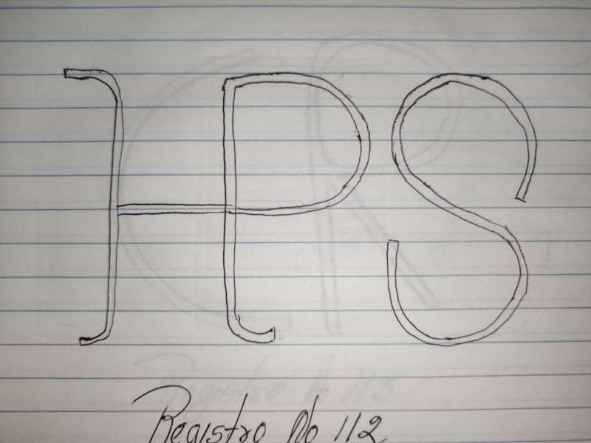 HPS
Registro No 112